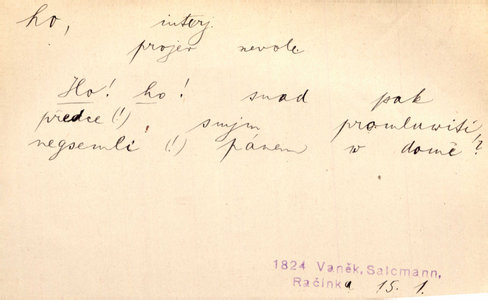 ho, interj.
projev nevole
Ho! ho! snad pak
předce (!), smjm promluwiti,
negsemli (!) pánem w domě?
1824 Vaněk, Salomann,
Račinka 15. 1.